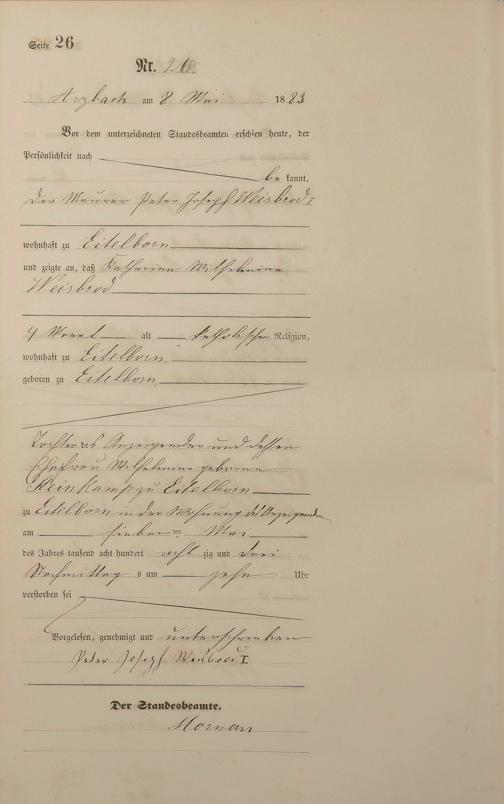 Seite 26
Nr. 26.
Arzbach am 8 Mai 1883
Vor dem unterzeichneten Standesbeamten erschien heute, der
Persönlichkeit nach
be kannt,
der Maurer Peter Joseph Weisbrod I
wohnhaft zu Eitelborn
und zeigte an, daß Katharina Wilhelmine
Weisbrod
4 Monat alt katholischer Religion,
wohnhaft zu Eitelborn
geboren zu Eitelborn
Tochter des Anzeigenden und dessen
Ehefrau Wilhelmine geborene
Kleinkamp zu Eitelborn
zu Eitelborn in der Wohnung des Anzeigenden
am sieben ten Mai
des Jahres tausend acht hundert acht zig und drei
Nachmittag s um zehn Uhr
verstorben sei
Vorgelesen, genehmigt und unterschrieben
Peter Joseph Weisbrod I
Der Standesbeamte.